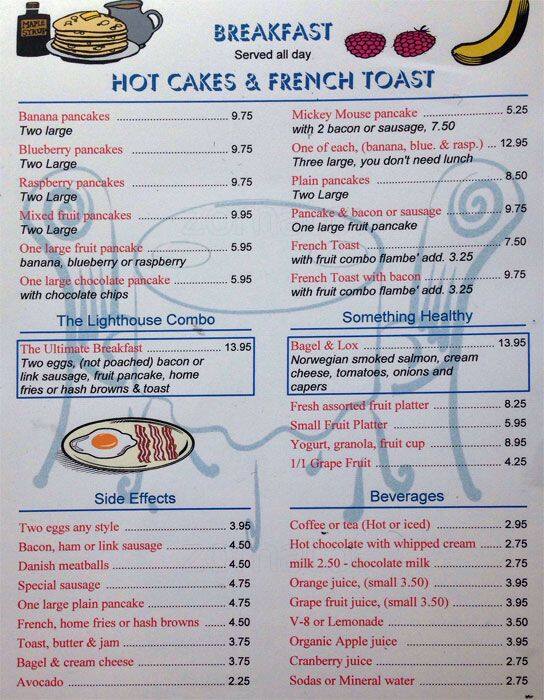 MAPLE
SYRUP
BREAKFAST
Served all day
HOT CAKES & FRENCH TOAST
Banana pancakes ........ 9.75
Two large
Blueberry pancakes ........ 9.75
Two Large
Raspberry pancakes ........ 9.75
Two Large
Mixed fruit pancakes ........ 9.95
Two Large
One large fruit pancake ........ 5.95
banana, blueberry or raspberry
One large chocolate pancake ........ 5.95
with chocolate chips
Mickey Mouse pancake ........ 5.25
with 2 bacon or sausage, 7.50
One of each, (banana, blue. & rasp.) ... 12.95
Three large, you don't need lunch
Plain pancakes ........ 8.50
Two Large
Pancake & bacon or sausage ........ 9.75
One large fruit pancake
French Toast ........ 7.50
with fruit combo flambe' add. 3.25
French Toast with bacon ........ 9.75
with fruit combo flambe' add. 3.25
The Lighthouse Combo
The Ultimate Breakfast ........ 13.95
Two eggs, (not poached) bacon or
link sausage, fruit pancake, home
fries or hash browns & toast
Something Healthy
Bagel & Lox ........ 13.95
Norwegian smoked salmon, cream
cheese, tomatoes, onions and
capers
Fresh assorted fruit platter ........ 8.25
Small Fruit Platter ........ 5.95
Yogurt, granola, fruit cup ........ 8.95
1/1 Grape Fruit ........ 4.25
Side Effects
Two eggs any style ........ 3.95
Bacon, ham or link sausage ........ 4.50
Danish meatballs ........ 4.50
Special sausage ........ 4.75
One large plain pancake ........ 4.75
French, home fries or hash browns ........ 4.50
Toast, butter & jam ........ 3.75
Bagel & cream cheese ........ 3.75
Avocado ........ 2.25
Beverages
Coffee or tea (Hot or iced) ........ 2.95
Hot chocolate with whipped cream ...... 2.75
milk 2.50 - chocolate milk ........ 2.75
Orange juice, (small 3.50) ........ 3.95
Grape fruit juice, (small 3.50) ........ 3.95
V-8 or Lemonade ........ 3.50
Organic Apple juice ........ 3.95
Cranberry juice ........ 2.75
Sodas or Mineral water ........ 2.75